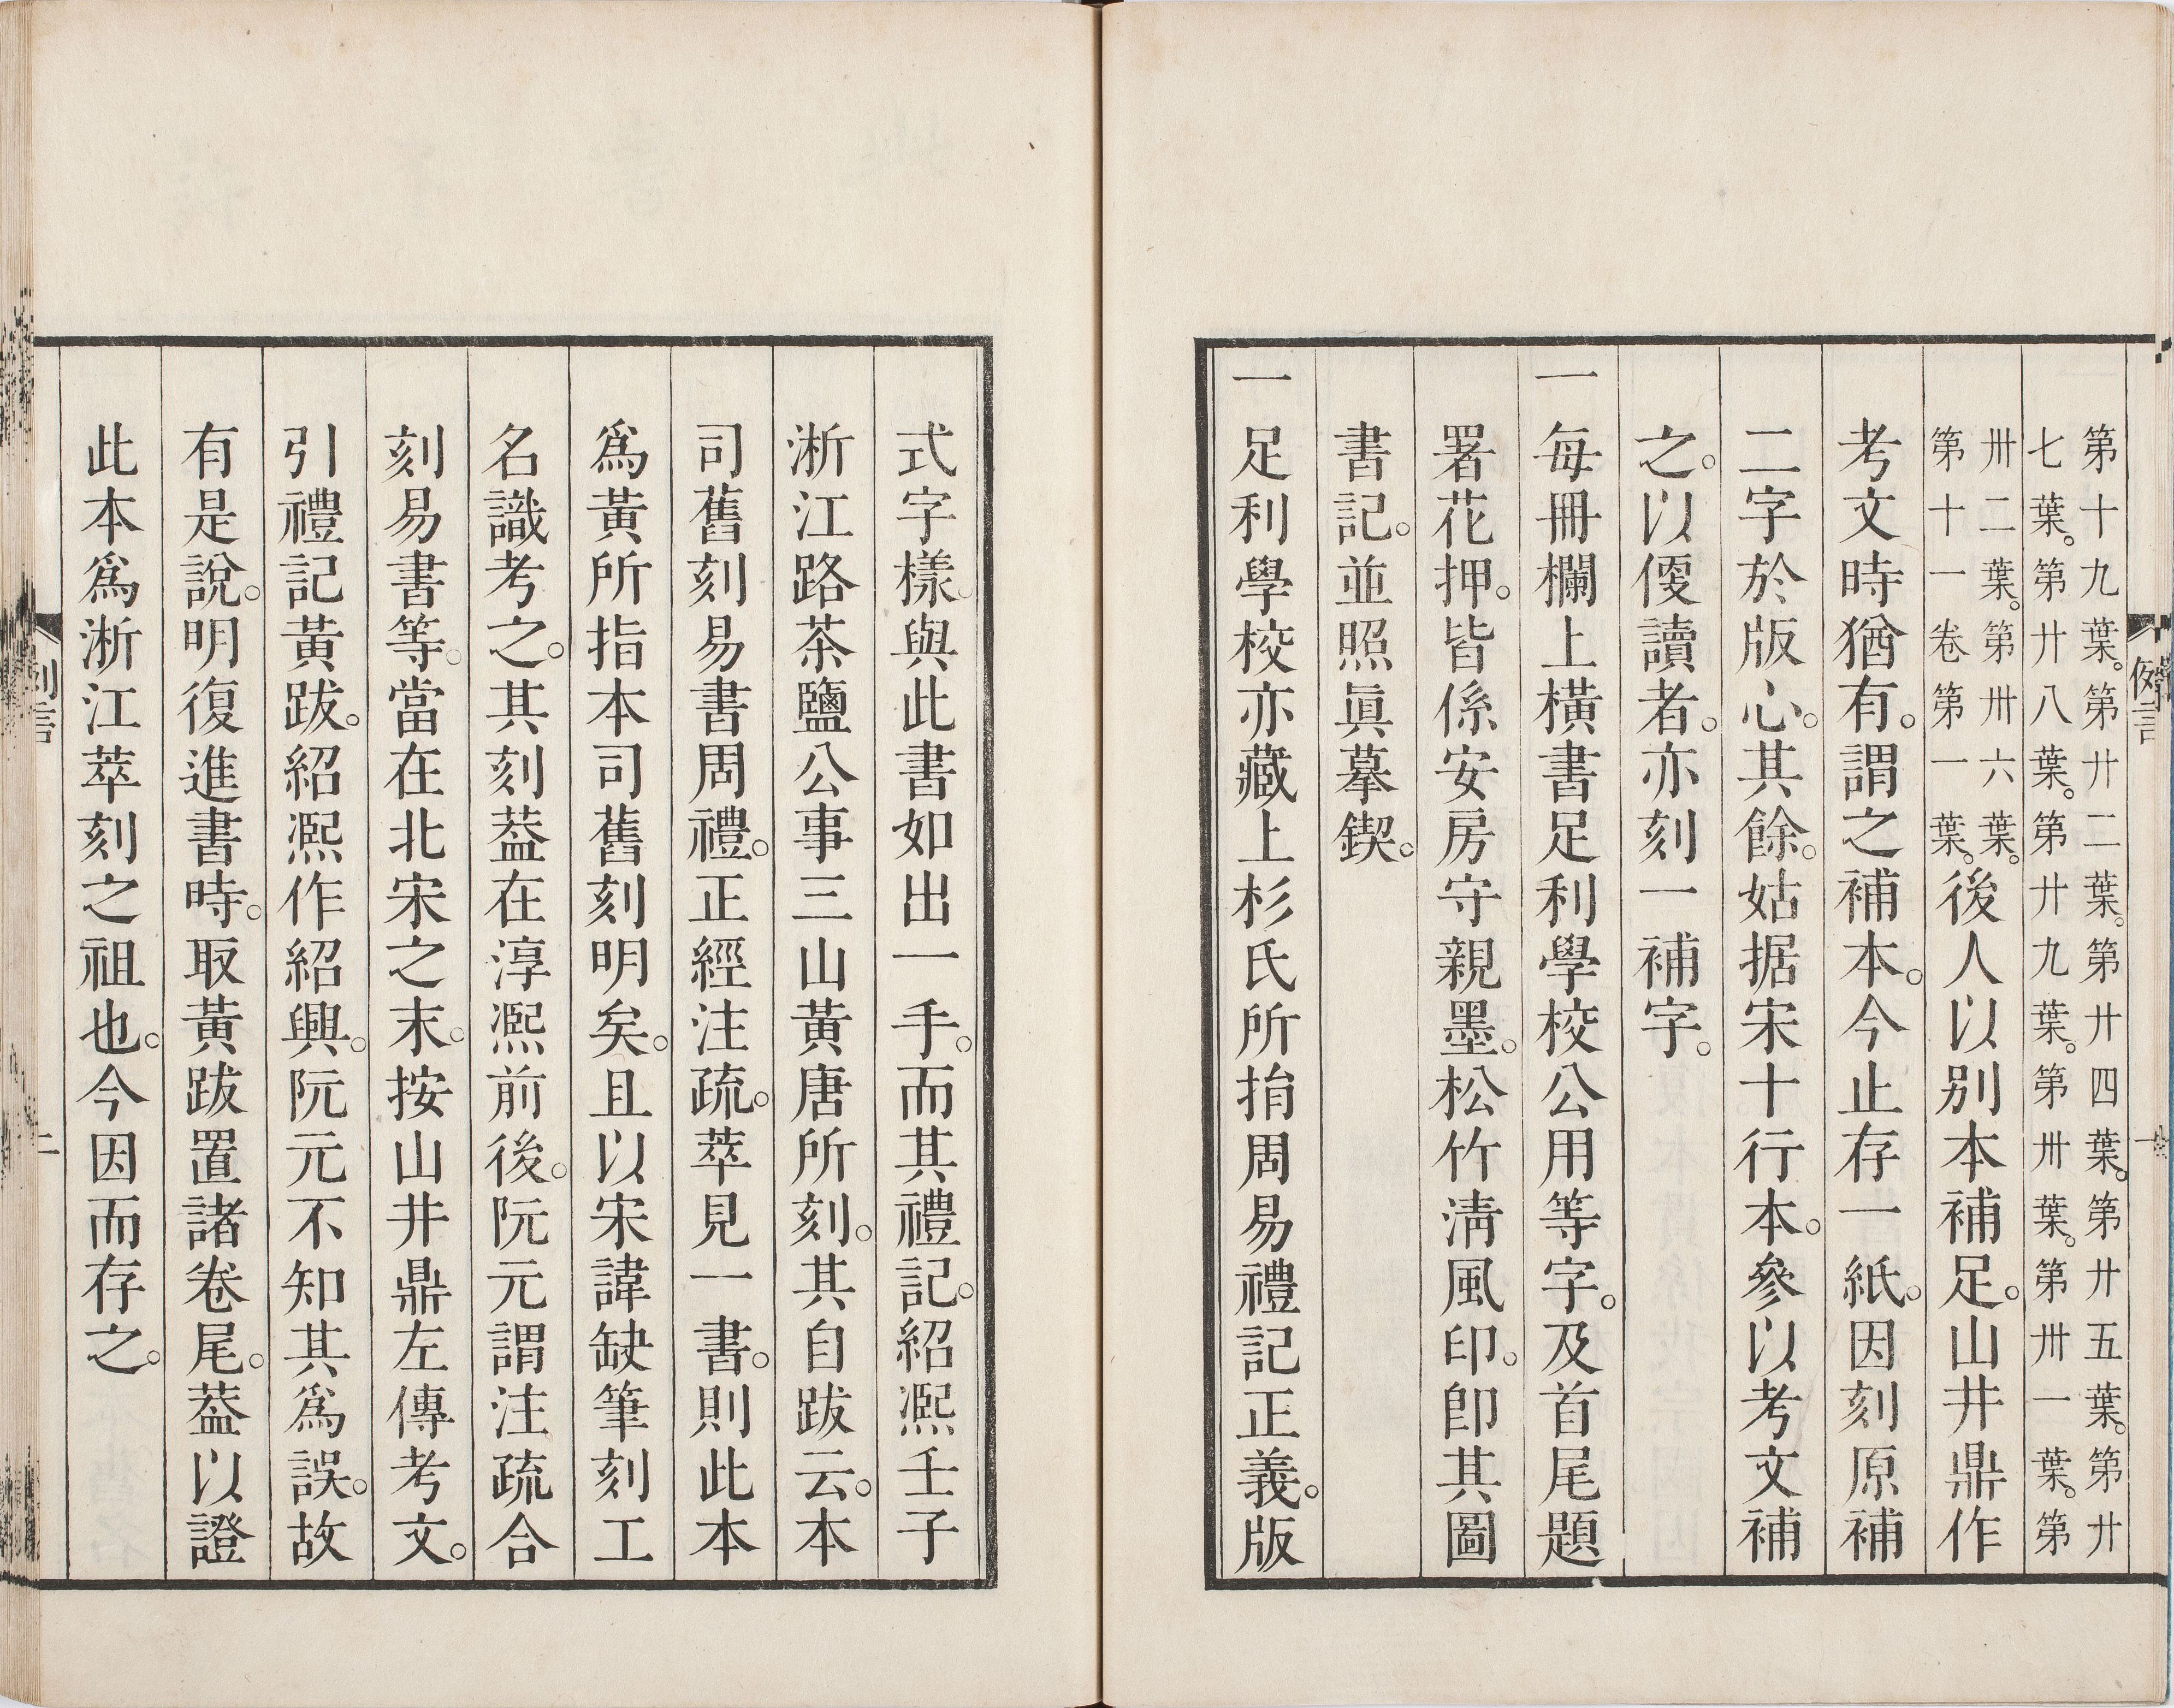 第十九葉。第廿二葉。第廿四葉。第廿五葉。第廿
七葉。第廿八葉。第廿九葉。第卅葉。第卅一葉。第
卅二葉。第卅六葉。
第十一卷第一葉。
後人以別本補足。山井鼎作
考文時猶有。謂之補本。今止存一紙。因刻原補
二字於版心。其餘。姑据宋十行本。參以考文補
之。以優讀者。亦刻一補字。
一每冊欄上橫書足利學校公用等字。及首尾題
署花押。皆係安房守親墨。松竹淸風印。卽其圖
書記。並照眞摹鍥。
一足利學校亦藏上杉氏所捐周易禮記正義。版
例言
式字樣。與此書如出一手。而其禮記。紹熈壬子
淅江路茶鹽公事三山黃唐所刻。其自跋云。本
司舊刻易書周禮。正經注疏。萃見一書。則此本
爲黃所指本司舊刻明矣。且以宋諱缺筆刻工
名識考之。其刻葢在淳熈前後。阮元謂注疏合
刻易書等。當在北宋之末。按山井鼎左傳考文。
引禮記黃跋。紹熈作紹興。阮元不知其爲誤。故
有是說。明復進書時。取黃跋置諸卷尾。葢以證
此本爲淅江萃刻之祖也。今因而存之。
例言
二